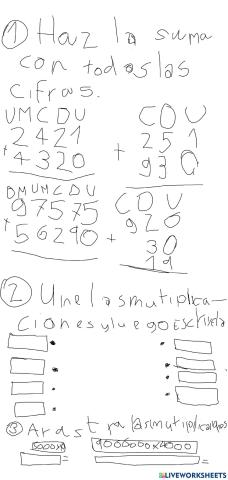 ① Haz la suma
con todas las
cifras.
UMCDU
2421
+ 4320
CDU
251
+ 930
DMUMCDU
97575
+ 56290
CDU
920
+ 30
19
② Une las mutiplica-
ciones y luego Escrivela
③ Arastra las mutiplicaciones
5000x0
9000000x4000
=
=
LIVEWORKSHEETS